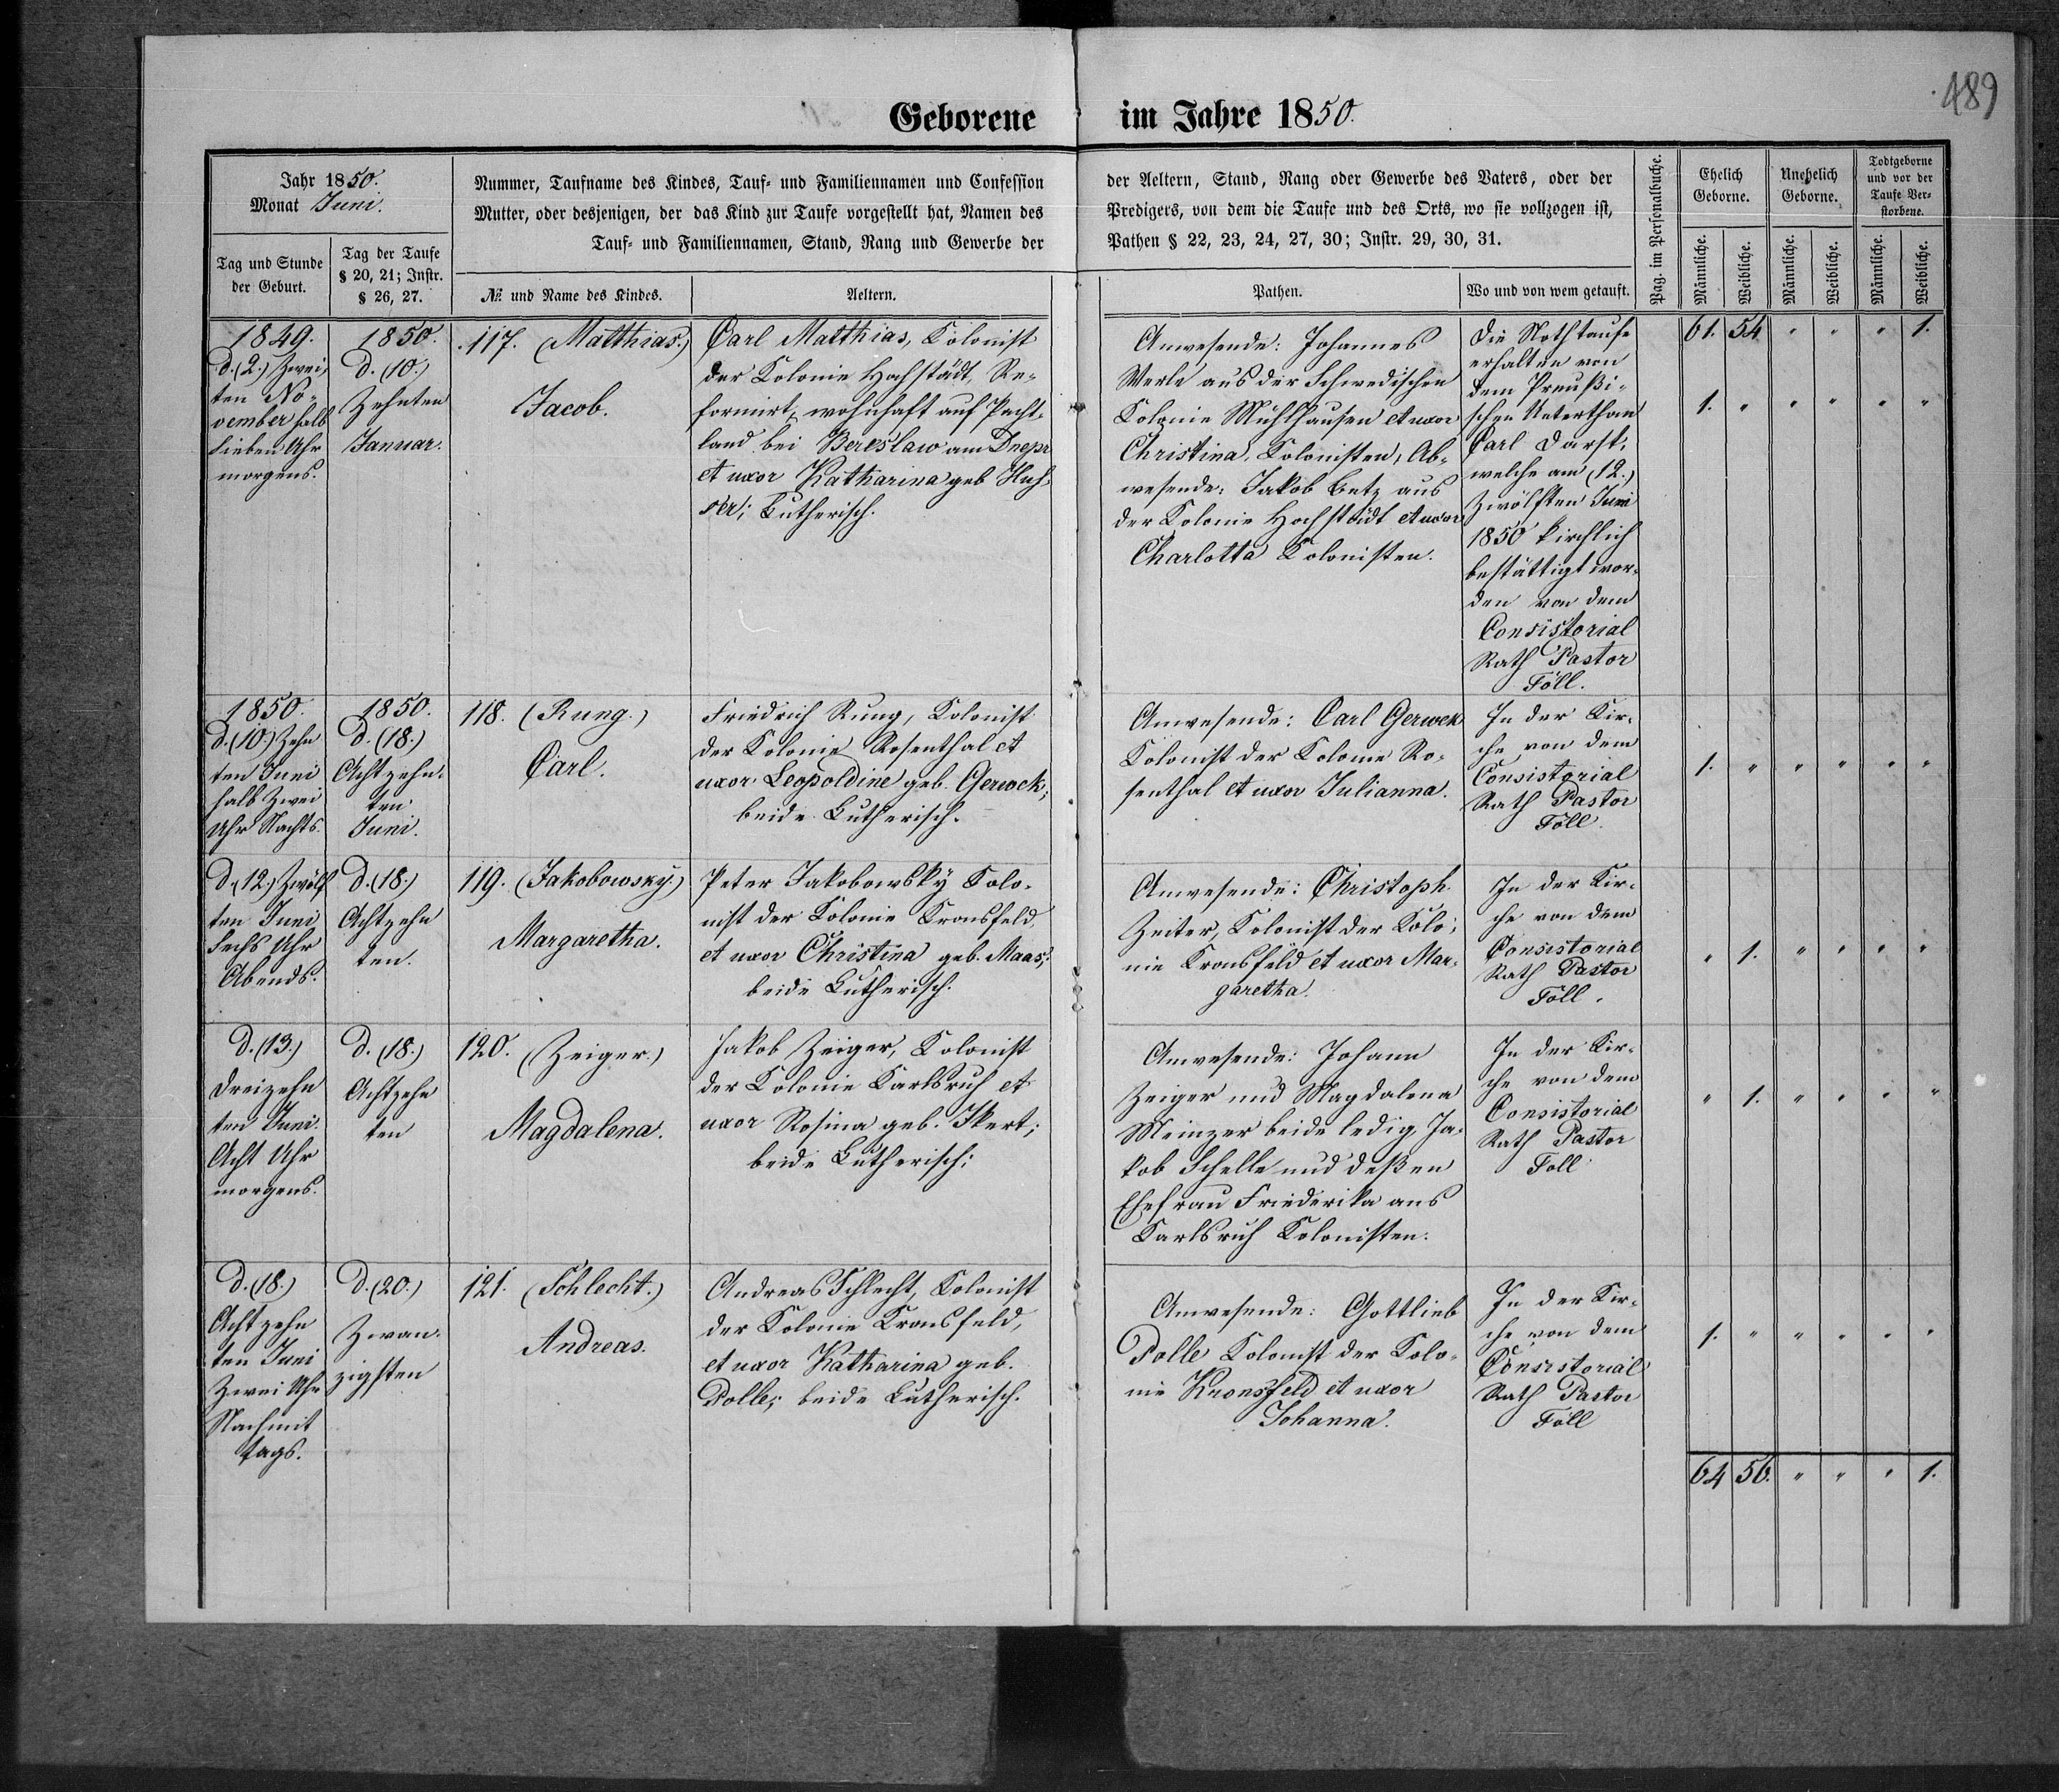 489
Geborene im Jahre 1850.
Jahr 1850.
Monat Juni.
Tag und Stunde
der Geburt.
Tag der Taufe
§ 20, 21; Instr.
§ 26, 27.
Nummer, Taufname des Kindes, Tauf- und Familiennamen und Confession
Mutter, oder desjenigen, der das Kind zur Taufe vorgestellt hat, Namen des
Tauf- und Familiennamen, Stand, Rang und Gewerbe der
№ und Name des Kindes.
Aeltern.
der Aeltern, Stand, Rang oder Gewerbe des Vaters, oder der
Predigers, von dem die Taufe und des Orts, wo sie vollzogen ist,
Pathen § 22, 23, 24, 27, 30; Instr. 29, 30, 31.
Pathen.
Wo und von wem getauft.
Pag. im Personalbuche.
Ehelich
Geborne.
Unehelich
Geborne.
Todtgeborne
und vor der
Taufe Ver-
storbene.
Männliche.
Weibliche.
Männliche.
Weibliche.
Männliche.
Weibliche.
1849.
d. (2.) Zwei
ten No-
vember halb
sieben Uhr
morgens.
1850.
d. (10.)
Zehnten
Januar.
117. (Matthias.)
Jacob.
Carl Matthias, Kolonist
der Kolonie Hochstädt, Re-
formirt, wohnhaft auf Pacht-
land bei Bereslaw am Dnepr
et uxor Katharina geb.
Lutherisch.
Anwesende: Johannes
Werle aus der Schwedischen
Kolonie Mühlhausen et uxor
Christina, Kolonisten, Ab-
wesende: Jakob Betz aus
der Kolonie Hochstädt et uxor
Charlotta Kolonisten.
Die Nothtaufe
erhalten von
dem Preußi-
schen Unterthan
Carl Darst,
welche am (12.)
Zwölften Juni
1850 kirchlich
bestättigt wor-
den von dem
Consistorial
Rath Pastor
Föll.
61. 54. " " " 1.
1. " " " " "
1850.
d. (10.) Zehn
ten Juni
halb Zwei
Uhr Nachts.
1850.
d. (18.)
Achtzehn-
ten
Juni.
118. (Rung.)
Carl.
Friedrich Rung, Kolonist
der Kolonie Rosenthal et
uxor Leopoldine geb. Gerwek;
beide Lutherisch.
Anwesende: Carl Gerwek
Kolonist der Kolonie Ro-
senthal et uxor Julianna.
In der Kir-
che von dem
Consistorial
Rath Pastor
Föll.
1. " " " " "
d. (12.) Zwölf
ten Juni
Sechs Uhr
Abends.
d. (18.)
Achtzehn
ten.
119. (Jakobowsky.)
Margaretha.
Peter Jakobowsky Kolo-
nist der Kolonie Kronsfeld,
et uxor Christina geb. Maas;
beide Lutherisch.
Anwesende: Christoph
Zeiter, Kolonist der Kolo-
nie Kronsfeld et uxor Mar-
garetha.
In der Kir-
che von dem
Consistorial
Rath Pastor
Föll.
" 1. " " " "
d. (13.)
Dreizehn
ten Juni.
Acht Uhr
morgens.
d. (18.)
Achtzehn
ten
120. (Zeiger.)
Magdalena.
Jakob Zeiger, Kolonist
der Kolonie Karlsruh et
uxor Rosina geb. Ikert;
beide Lutherisch;
Anwesende: Johann
Zeiger und Magdalena
Meinzer beide ledig, Ja-
kob Schelle und deßen
Ehefrau Friederika aus
Karlsruh Kolonisten.
In der Kir-
che von dem
Consistorial
Rath Pastor
Föll
" 1. " " " "
d. (18.)
Achtzehn
ten Juni
Zwei Uhr
Nachmit
tags.
d. (20.)
Zwan-
zigsten
121. (Schlecht.)
Andreas.
Andreas Schlecht, Kolonist
der Kolonie Kronsfeld,
et uxor Katharina geb.
Polle; beide Lutherisch.
Anwesende: Gottlieb
Polle Kolonist der Kolo-
nie Kronsfeld et uxor
Johanna.
In der Kir-
che von dem
Consistorial
Rath Pastor
Föll
1. " " " " "
64 56. " " " 1.